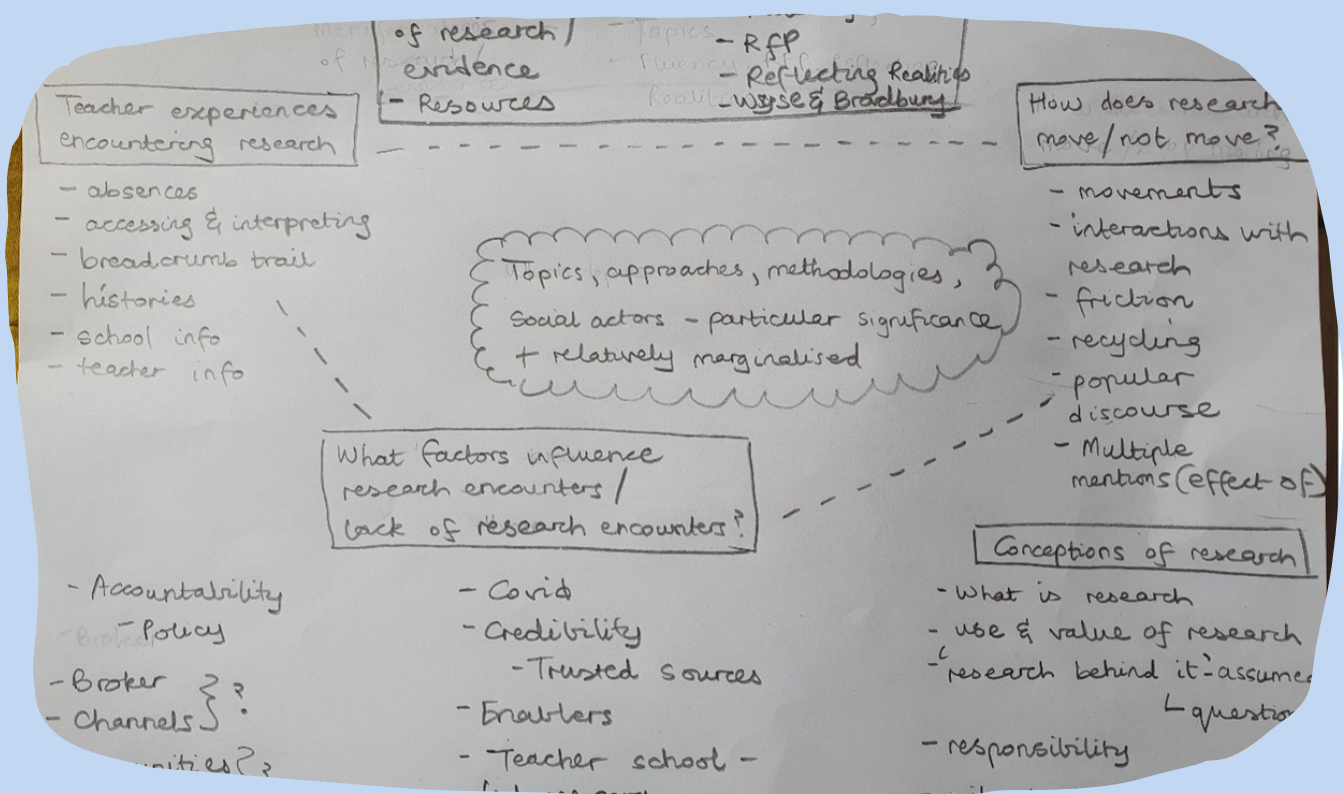 of research/
evidence
- Resources
- RfP
- Reflecting Realities
- Wyse & Bradbury
Teacher experiences
encountering research
- absences
- accessing & interpreting
- breadcrumb trail
- histories
- school info
- teacher info
How does research
move/not move?
- movements
- interactions with
research
- friction
- recycling
- popular
discourse
- Multiple
mentions (effect of)
Topics, approaches, methodologies,
social actors - particular significance
+ relatively marginalised
What factors influence
research encounters /
lack of research encounters?
- Accountability
- Policy
- Broker
- Channels } ?
- Covid
- Credibility
- Trusted sources
- Enablers
- Teacher school -
Conceptions of research
- What is research
- use & value of research
- 'research behind it' - assumed
- responsibility